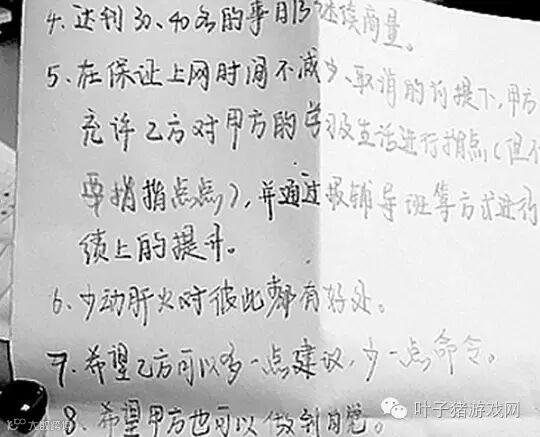 4、达到30、40名的事日后继续商量。
5、在保证上网时间不减少、取消的前提下,甲方
充许乙方对甲方的学习及生活进行指点(但不
要指指点点),并通过报辅导班等方式进行
绩上的提升。
6、少动肝火对彼此都有好处。
7、希望乙方可以多一点建议,少一点命令。
8、希望甲方也可以做到自觉。
叶子猪游戏网